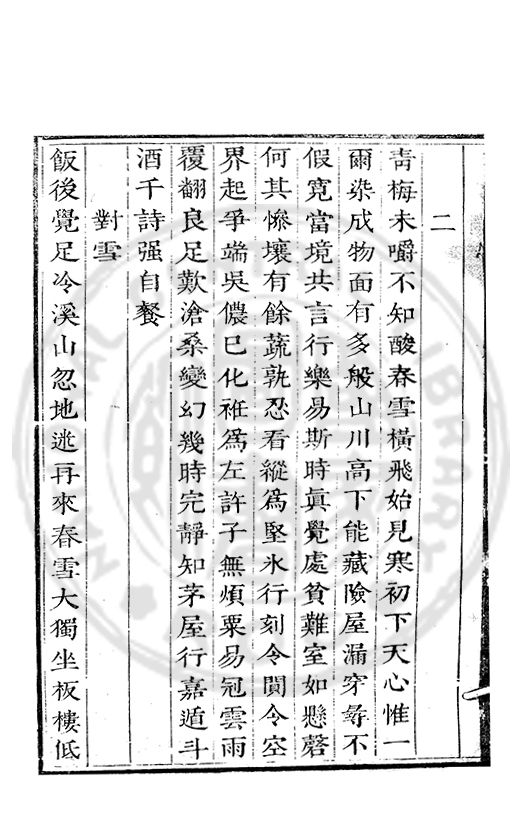 二
青梅未嚼不知酸春雪橫飛始見寒初下天心惟一
爾染成物面有多般山川高下能藏險屋漏穿尋不
假寬當境共言行樂易斯時眞覺處貧難室如懸磬
何其慘壤有餘蔬孰忍看縱爲堅氷行刻令閴令空
界起爭端吳儂已化袵爲左許子無煩粟易冠雲雨
覆翻良足歎滄桑變幻幾時完靜知茅屋行嘉遁斗
酒千詩强自餐
對雪
飯後覺足冷溪山忽地迷再來春雪大獨坐板樓低